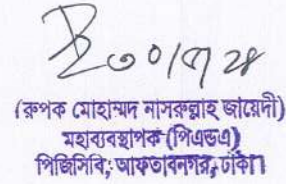 ৩০/৭/২৪
(রুপক মোহাম্মদ নাসরুল্লাহ জায়েদী)
মহাব্যবস্থাপক (পিএন্ডএ)
পিজিসিবি, আফতাবনগর, ঢাকা।